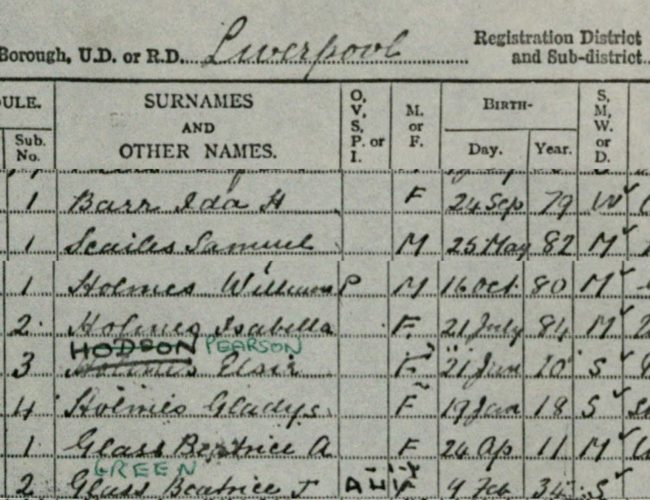 Borough, U.D. or R.D. Liverpool Registration District and Sub-district
DULE. Sub. No. SURNAMES AND OTHER NAMES. O, V, S, P, or I. M. or F. BIRTH- Day. Year. S, M, W, or D.
1 Barr Ida H F 24 Sep 79 W
1 Scailes Samuel M 25 May 82 M
1 Holmes William P M 16 Oct 80 M
2 Holmes Isabella F 21 July 84 M
HODSON PEARSON
3 Holmes Elsie F 21 Jan 10 S
4 Holmes Gladys F 19 Jan 18 S
1 Glass Beatrice A F 24 Ap 11 M
GREEN
2 Glass Beatrice J F 9 Feb 35 S